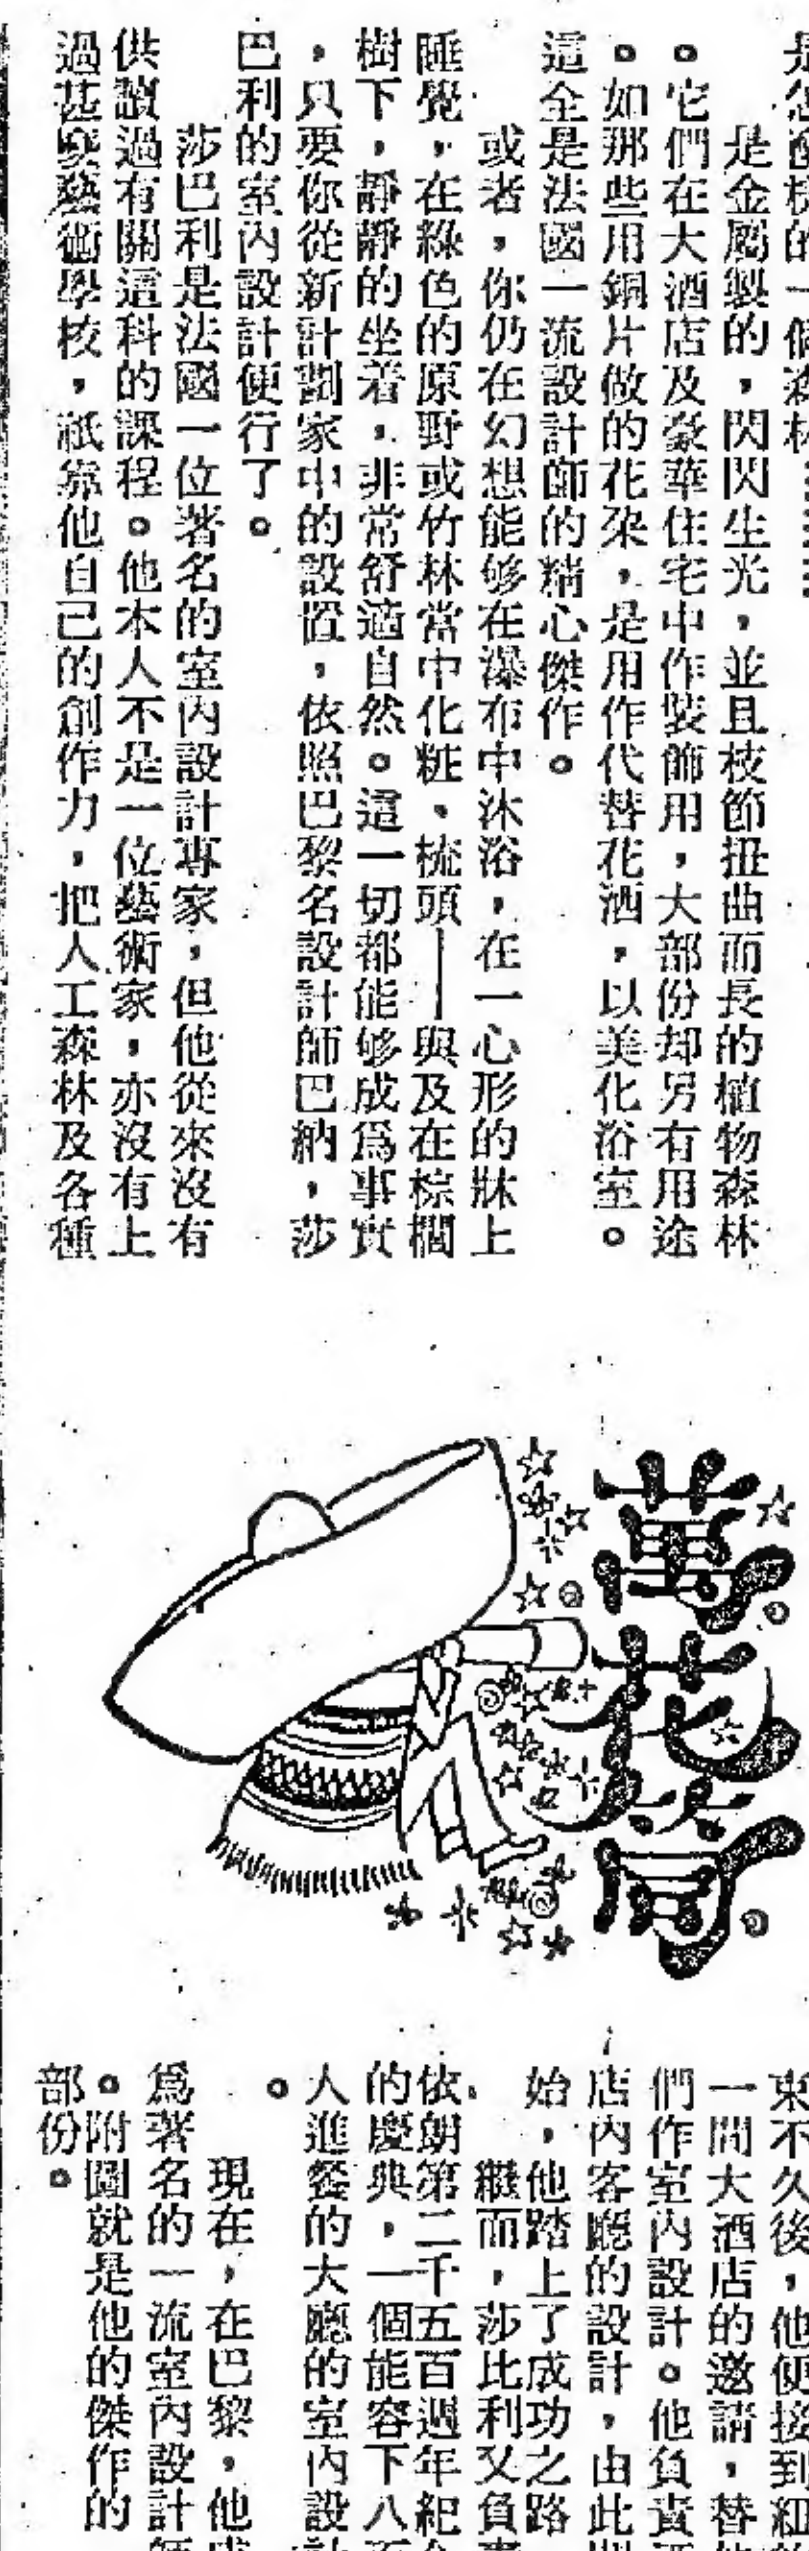 是金屬製的，閃閃生光，並且枝節扭曲而長的植物森林
。它們在大酒店及豪華住宅中作裝飾用，大部份却另有用途
。如那些用銅片做的花朶，是用作代替花洒，以美化浴室。
這全是法國一流設計師的精心傑作。
或者，你仍在幻想能够在瀑布中沐浴，在一心形的牀上
睡覺，在綠色的原野或竹林當中化粧、梳頭——與及在棕櫚
樹下，靜靜的坐着，非常舒適自然。這一切都能够成爲事實
，只要你從新計劃家中的設置，依照巴黎名設計師巴納，莎
巴利的室內設計便行了。
莎巴利是法國一位著名的室內設計專家，但他從來沒有
供讀過有關這科的課程。他本人不是一位藝術家，亦沒有上
過甚麼藝術學校，祇靠他自己的創作力，把人工森林及各種
萬花筒
東不久後，他便接到紐
一間大酒店的邀請，替
們作室內設計。他負責
店內客廳的設計，由此
始，他踏上了成功之路
繼而，莎比利又負
依朗第二千五百週年紀
的慶典，一個能容下八
人進餐的大廳的室內設
。
現在，在巴黎，他
爲著名的一流室內設計
。附圖就是他的傑作的
部份。